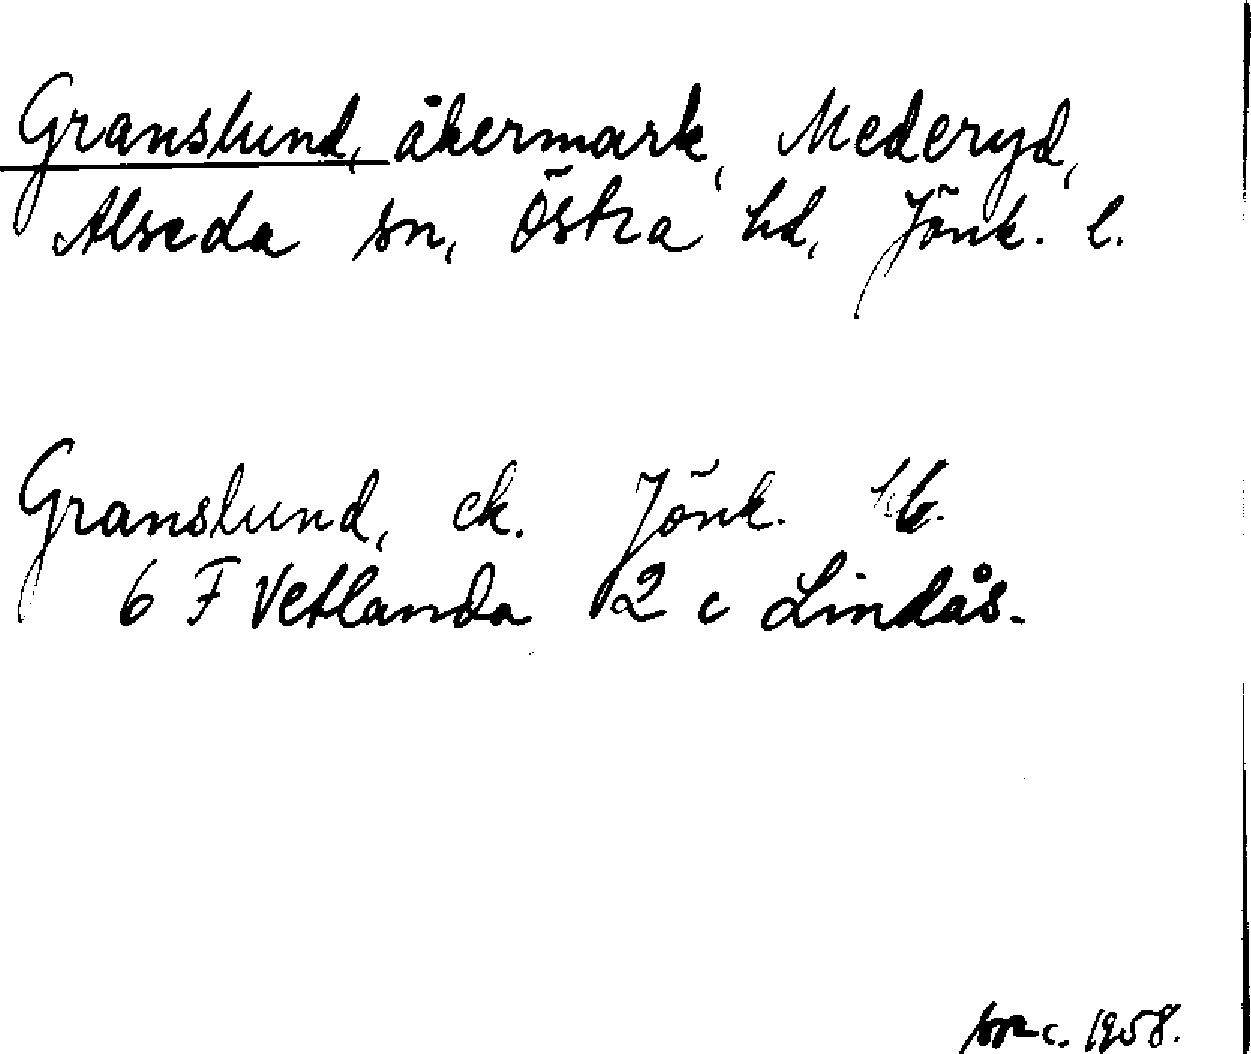 Granslund, åkermark, Mederyd,
Alseda sn, Östra hd, Jönk. l.
Granslund, ek. Jönk.
6 F Vetlanda 2 c Lindås.
c. 1958.